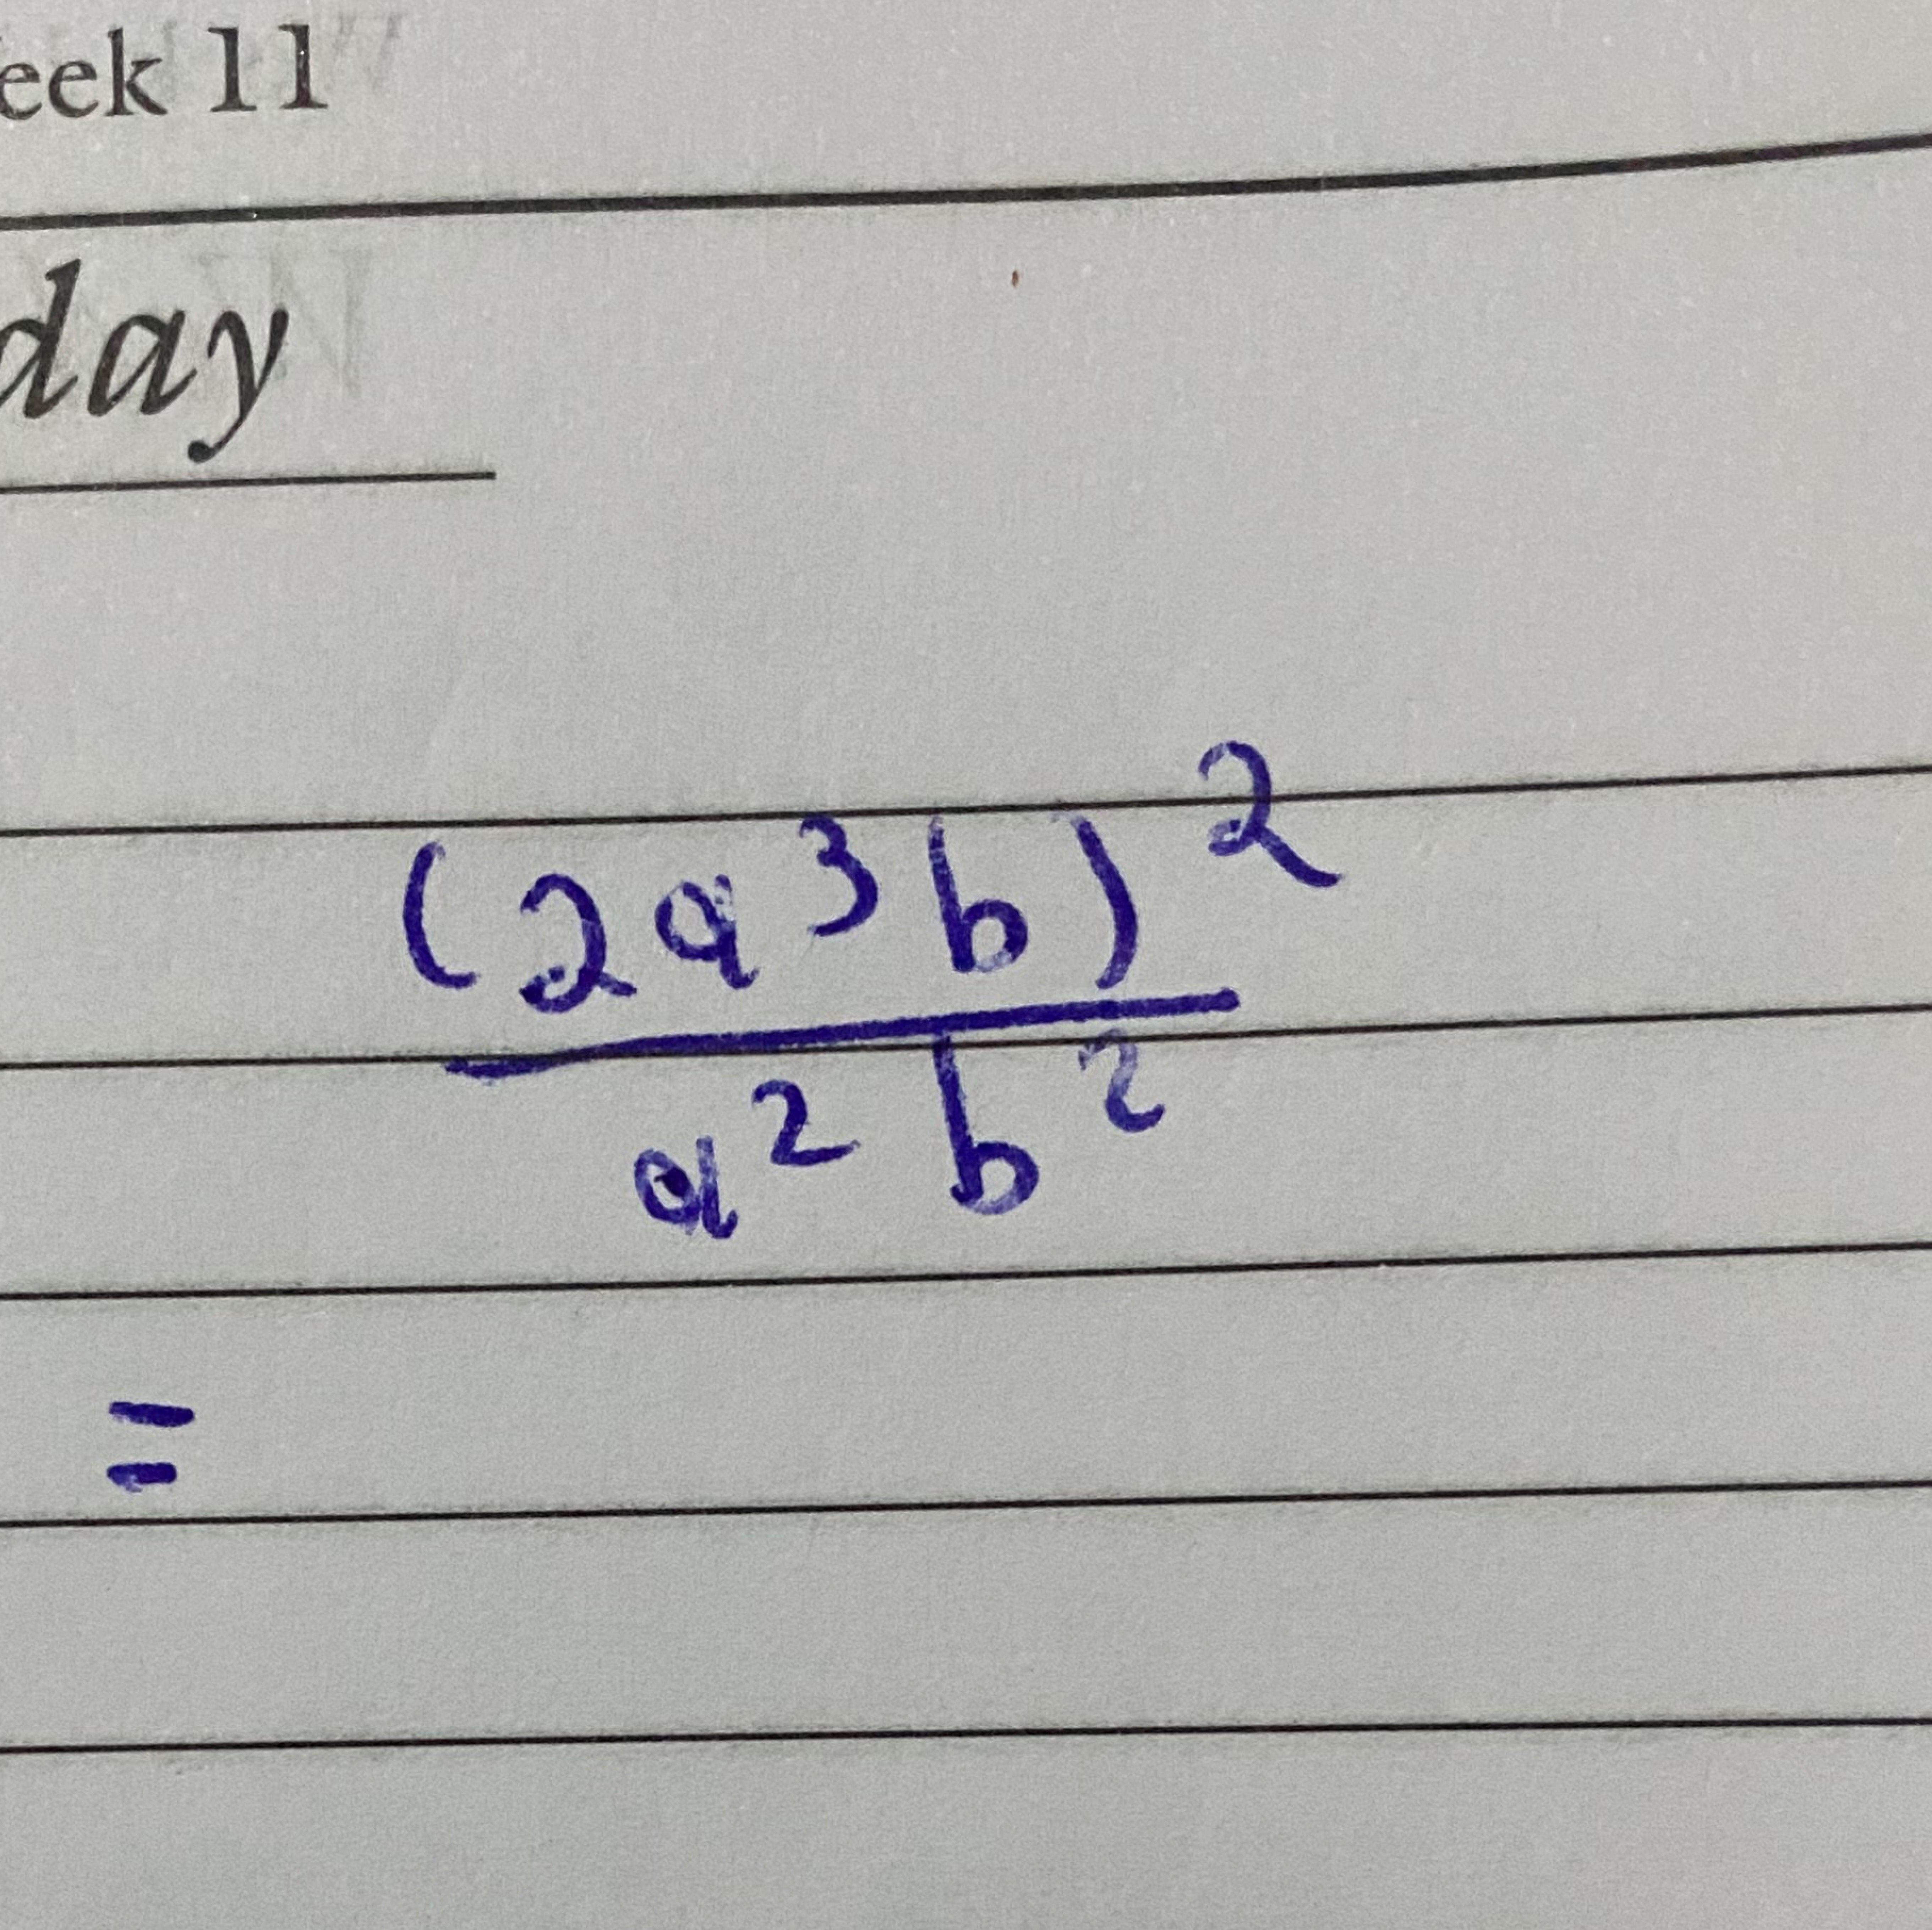 eek 11
day
(2a³b)²
a² b²
=